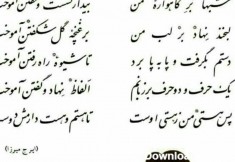 شبها بر گاهواره من
بیدار نشست و خفتن آموخت
لبخند نهاد بر لب من
بر غنچه گل شکفتن آموخت
دستم بگرفت و پا به پا برد
تا شیوه راه رفتن آموخت
یک حرف و دو حرف بر زبانم
الفاظ نهاد و گفتن آموخت
پس هستی من ز هستی اوست
تا هستم و هست دارمش دوست
(ایرج میرزا)
Download